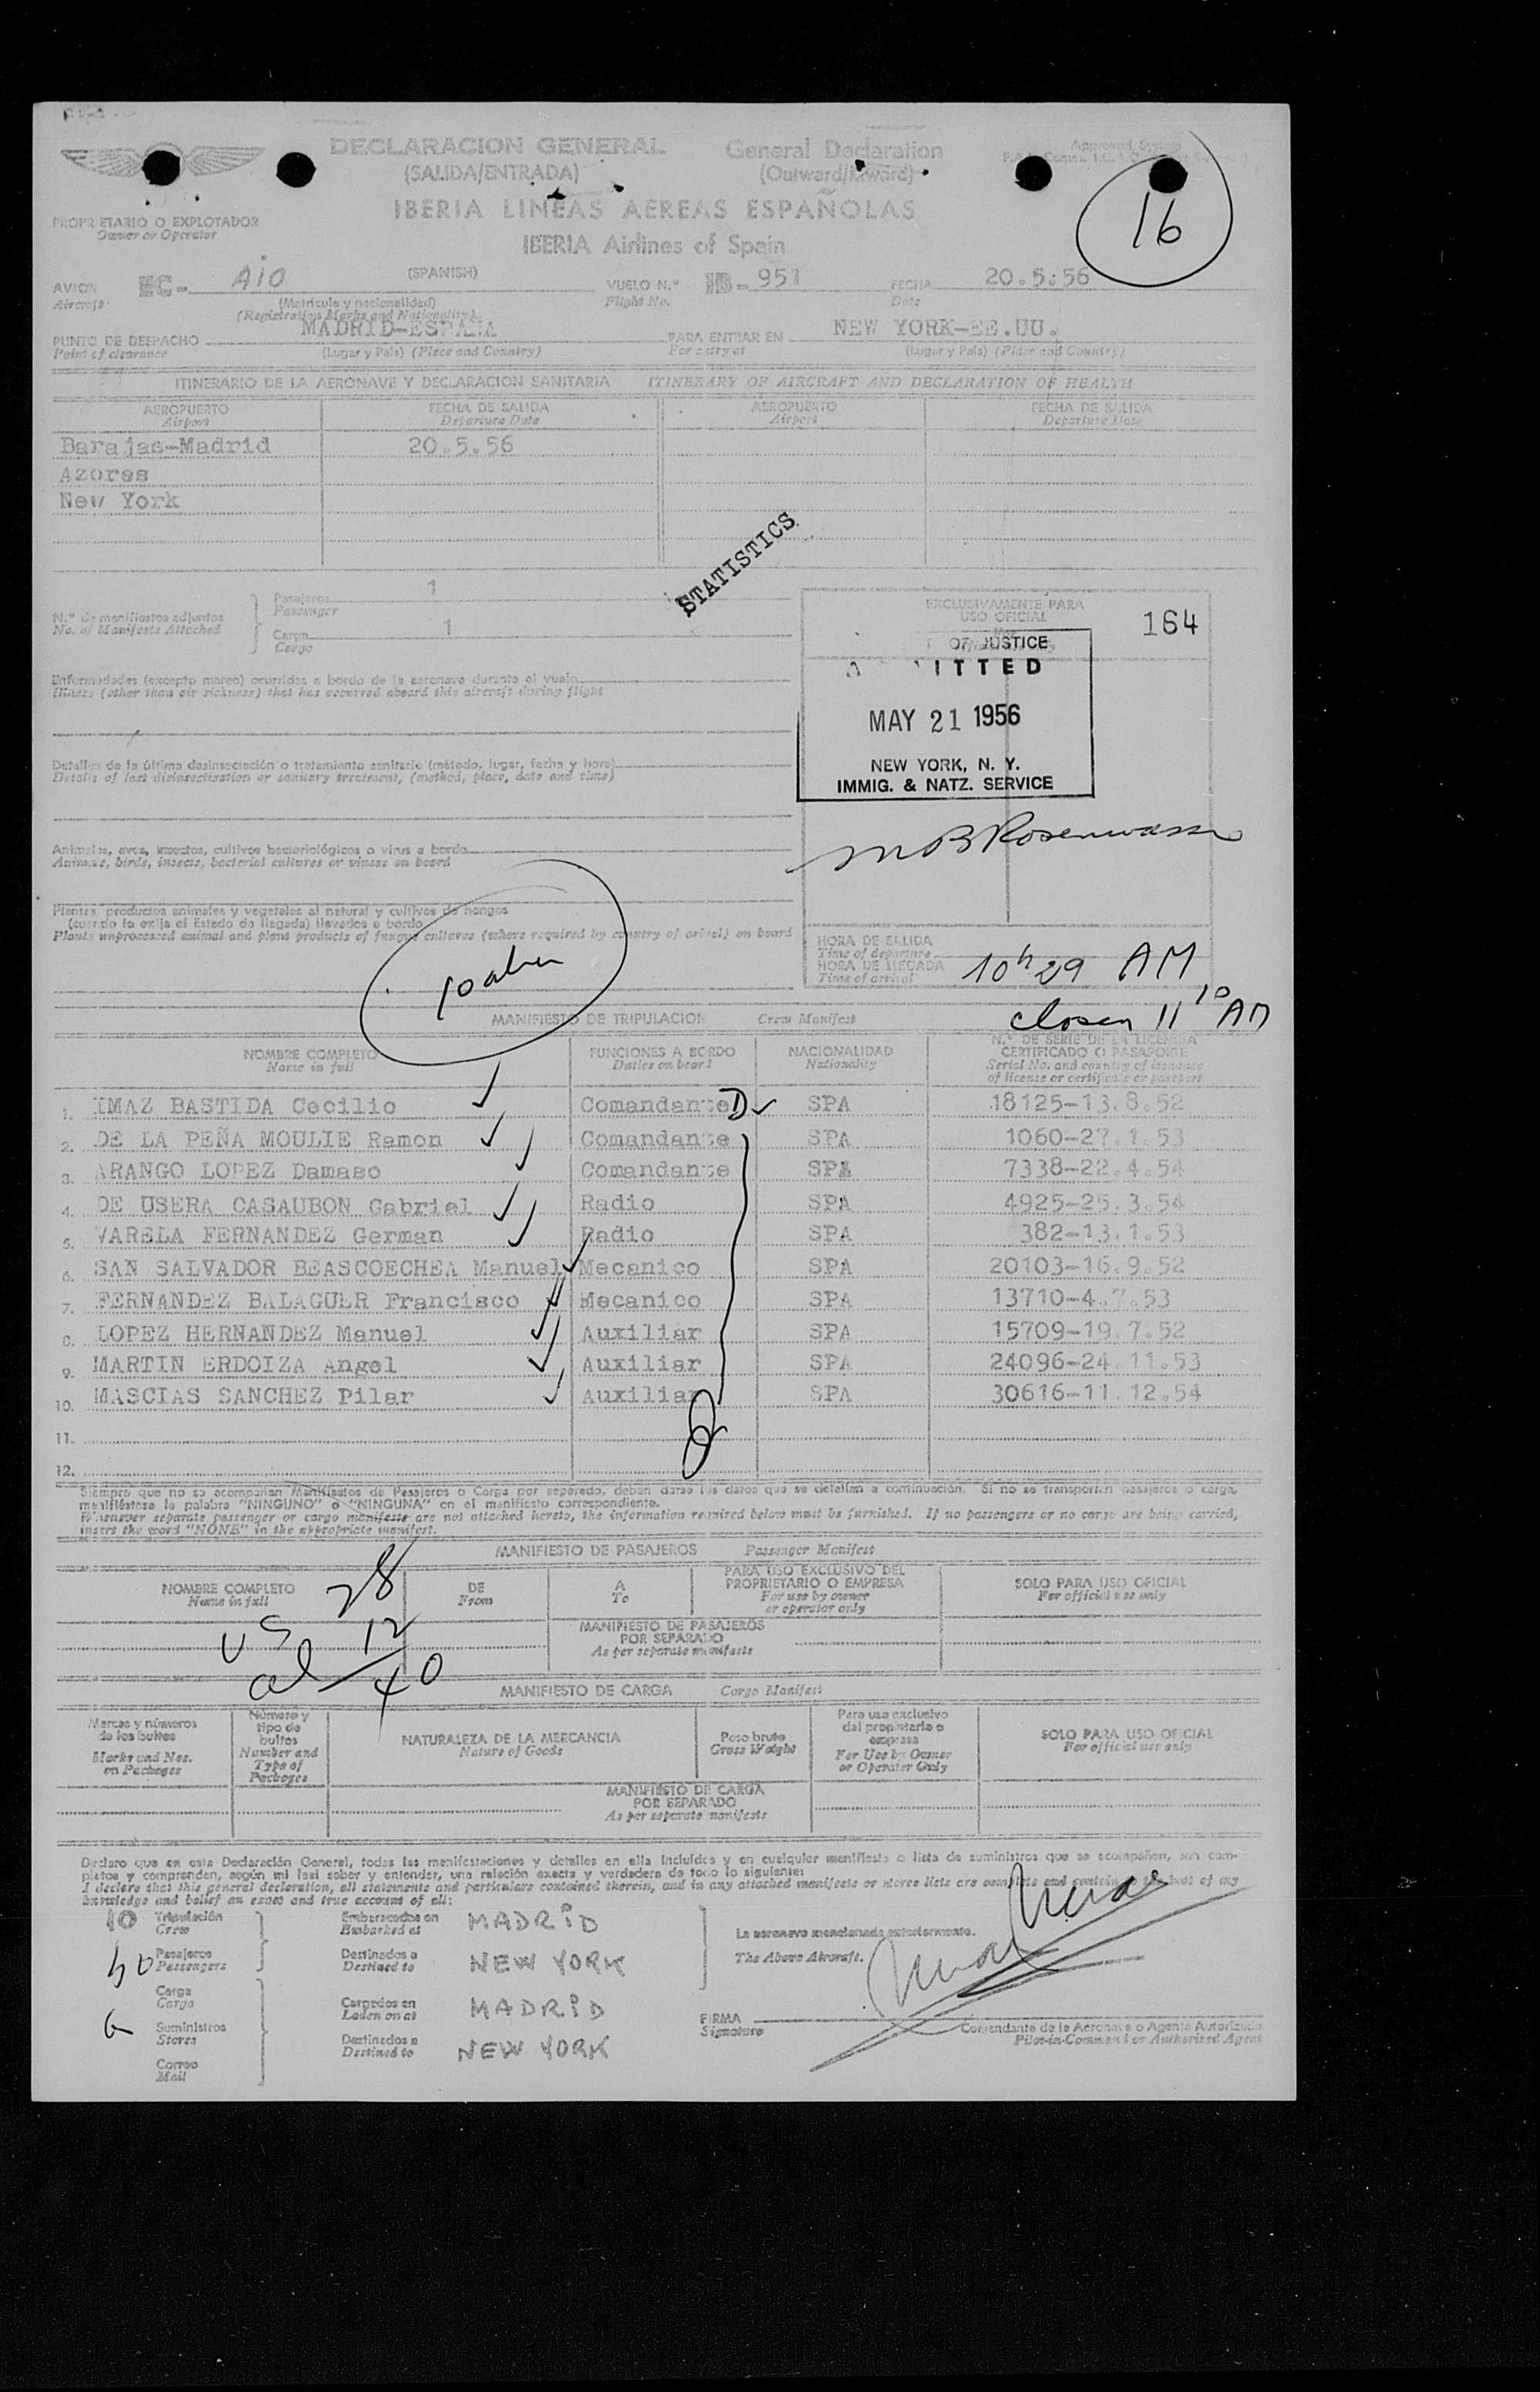 DECLARACION GENERAL
General Declaration
(SALIDA/ENTRADA)
(Outward/Inward)
16
IBERIA LINEAS AEREAS ESPAÑOLAS
IBERIA Airlines of Spain
PROPIETARIO O EXPLOTADOR
Owner or Operator
AVION EC- AiO (SPANISH) VUELO N.º IB-951 FECHA 20.5.56
Aircraft (Matrícula y nacionalidad) Flight No. Date
(Registration Marks and Nationality)
PUNTO DE DESPACHO MADRID-ESPAÑA PARA ENTRAR EN NEW YORK-EE.UU.
Point of clearance (Lugar y País) (Place and Country) For entry at (Lugar y País) (Place and Country)
ITINERARIO DE LA AERONAVE Y DECLARACION SANITARIA ITINERARY OF AIRCRAFT AND DECLARATION OF HEALTH
AEROPUERTO FECHA DE SALIDA AEROPUERTO FECHA DE SALIDA
Airport Departure Date Airport Departure Date
Barajas-Madrid 20.5.56
Azores
New York
STATISTICS
N.º de manifiestos adjuntos
No. of Manifests Attached
Pasajeros 1
Passenger
Carga 1
Cargo
EXCLUSIVAMENTE PARA
USO OFICIAL
164
OF JUSTICE
ITTED
MAY 21 1956
NEW YORK, N. Y.
IMMIG. & NATZ. SERVICE
Enfermedades (excepto mareo) ocurridas a bordo de la aeronave durante el vuelo
Illness (other than air sickness) that has occurred aboard this aircraft during flight
Detalles de la última desinsectación o tratamiento sanitario (método, lugar, fecha y hora)
Details of last disinsectization or sanitary treatment, (method, place, date and time)
Animales, aves, insectos, cultivos bacteriológicos o virus a bordo
Animals, birds, insects, bacterial cultures or viruses on board
Plantas, productos animales y vegetales al natural y cultivos de hongos
(cuando lo exija el Estado de llegada) llevados a bordo
Plants unprocessed animal and plant products of fungus cultures (where required by country of arival) on board
HORA DE SALIDA
Time of departure
HORA DE LLEGADA
Time of arrival
10h29 AM
closen 11 10 AM
MANIFIESTO DE TRIPULACION Crew Manifest
NOMBRE COMPLETO FUNCIONES A BORDO NACIONALIDAD N.º DE SERIE DE LA LICENCIA
Name in full Duties on board Nationality CERTIFICADO O PASAPORTE
Serial No. and country of issuance
of license or certificate or passport
1. IMAZ BASTIDA Cecilio Comandante D SPA 18125-13.8.52
2. DE LA PEÑA MOULIE Ramon Comandante SPA 1060-27.1.53
3. ARANGO LOPEZ Damaso Comandante SPA 7338-22.4.54
4. DE USERA CASAUBON Gabriel Radio SPA 4925-25.3.54
5. VARELA FERNANDEZ German Radio SPA 382-13.1.53
6. SAN SALVADOR BEASCOECHEA Manuel Mecanico SPA 20103-16.9.52
7. FERNANDEZ BALAGUER Francisco Mecanico SPA 13710-4.7.53
8. LOPEZ HERNANDEZ Manuel Auxiliar SPA 15709-19.7.52
9. MARTIN ERDOIZA Angel Auxiliar SPA 24096-24.11.53
10. MASCIAS SANCHEZ Pilar Auxiliar SPA 30616-11.12.54
11.
12.
Siempre que no se acompañan Manifiestos de Pasajeros o Carga por separado, deben darse los datos que se detallan a continuación. Si no se transportan pasajeros o carga,
manifiéstese la palabra "NINGUNO" o "NINGUNA" en el manifiesto correspondiente.
Whenever separate passenger or cargo manifests are not attached hereto, the information required below must be furnished. If no passengers or no cargo are being carried,
insert the word "NONE" in the appropriate manifest.
MANIFIESTO DE PASAJEROS Passenger Manifest
NOMBRE COMPLETO DE A PARA USO EXCLUSIVO DEL SOLO PARA USO OFICIAL
Name in full From To PROPIETARIO O EMPRESA For official use only
For use by owner
or operator only
28
US 12
al 40
MANIFIESTO DE PASAJEROS
POR SEPARADO
As per separate manifests
MANIFIESTO DE CARGA Cargo Manifest
Marcas y números
de los bultos
Marks and Nos.
on Packages
Número y
tipo de
bultos
Number and
Type of
Packages
NATURALEZA DE LA MERCANCIA
Nature of Goods
Peso bruto
Gross Weight
Para uso exclusivo
del propietario o
empresa
For Use by Owner
or Operator Only
SOLO PARA USO OFICIAL
For official use only
MANIFIESTO DE CARGA
POR SEPARADO
As per separate manifests
Declaro que en esta Declaración General, todas las manifestaciones y detalles en ella incluidos y en cualquier manifiesto o lista de suministros que se acompañen, son com-
pletos y comprenden, según mi leal saber y entender, una relación exacta y verdadera de todo lo siguiente:
I declare that this general declaration, all statements and particulars contained therein, and in any attached manifests or stores lists are complete and contain to the best of my
knowledge and belief an exact and true account of all:
10 Tripulación
Crew
40 Pasajeros
Passengers
Carga
Cargo
Suministros
Stores
Correo
Mail
Embarcados en MADRiD
Embarked at
Destinados a NEW YORK
Destined to
Cargados en MADRiD
Laden on at
Destinados a NEW YORK
Destined to
La aeronave mencionada anteriormente.
The Above Aircraft.
FIRMA
Signature
Comandante de la Aeronave o Agente Autorizado
Pilot-in-Command or Authorized Agent